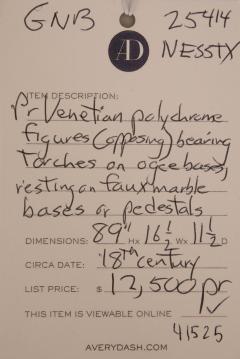 GNB 25414
AD NESSTX
ITEM DESCRIPTION:
Pr Venetian polychrome
figures (opposing) bearing
torches on ogee bases,
resting on faux marble
bases or pedestals
DIMENSIONS: 89" H x 16 1/2 W x 11 1/2 D
CIRCA DATE: 18th century
LIST PRICE: $ 12,500 pr
THIS ITEM IS VIEWABLE ONLINE ✓
41525
AVERYDASH.COM